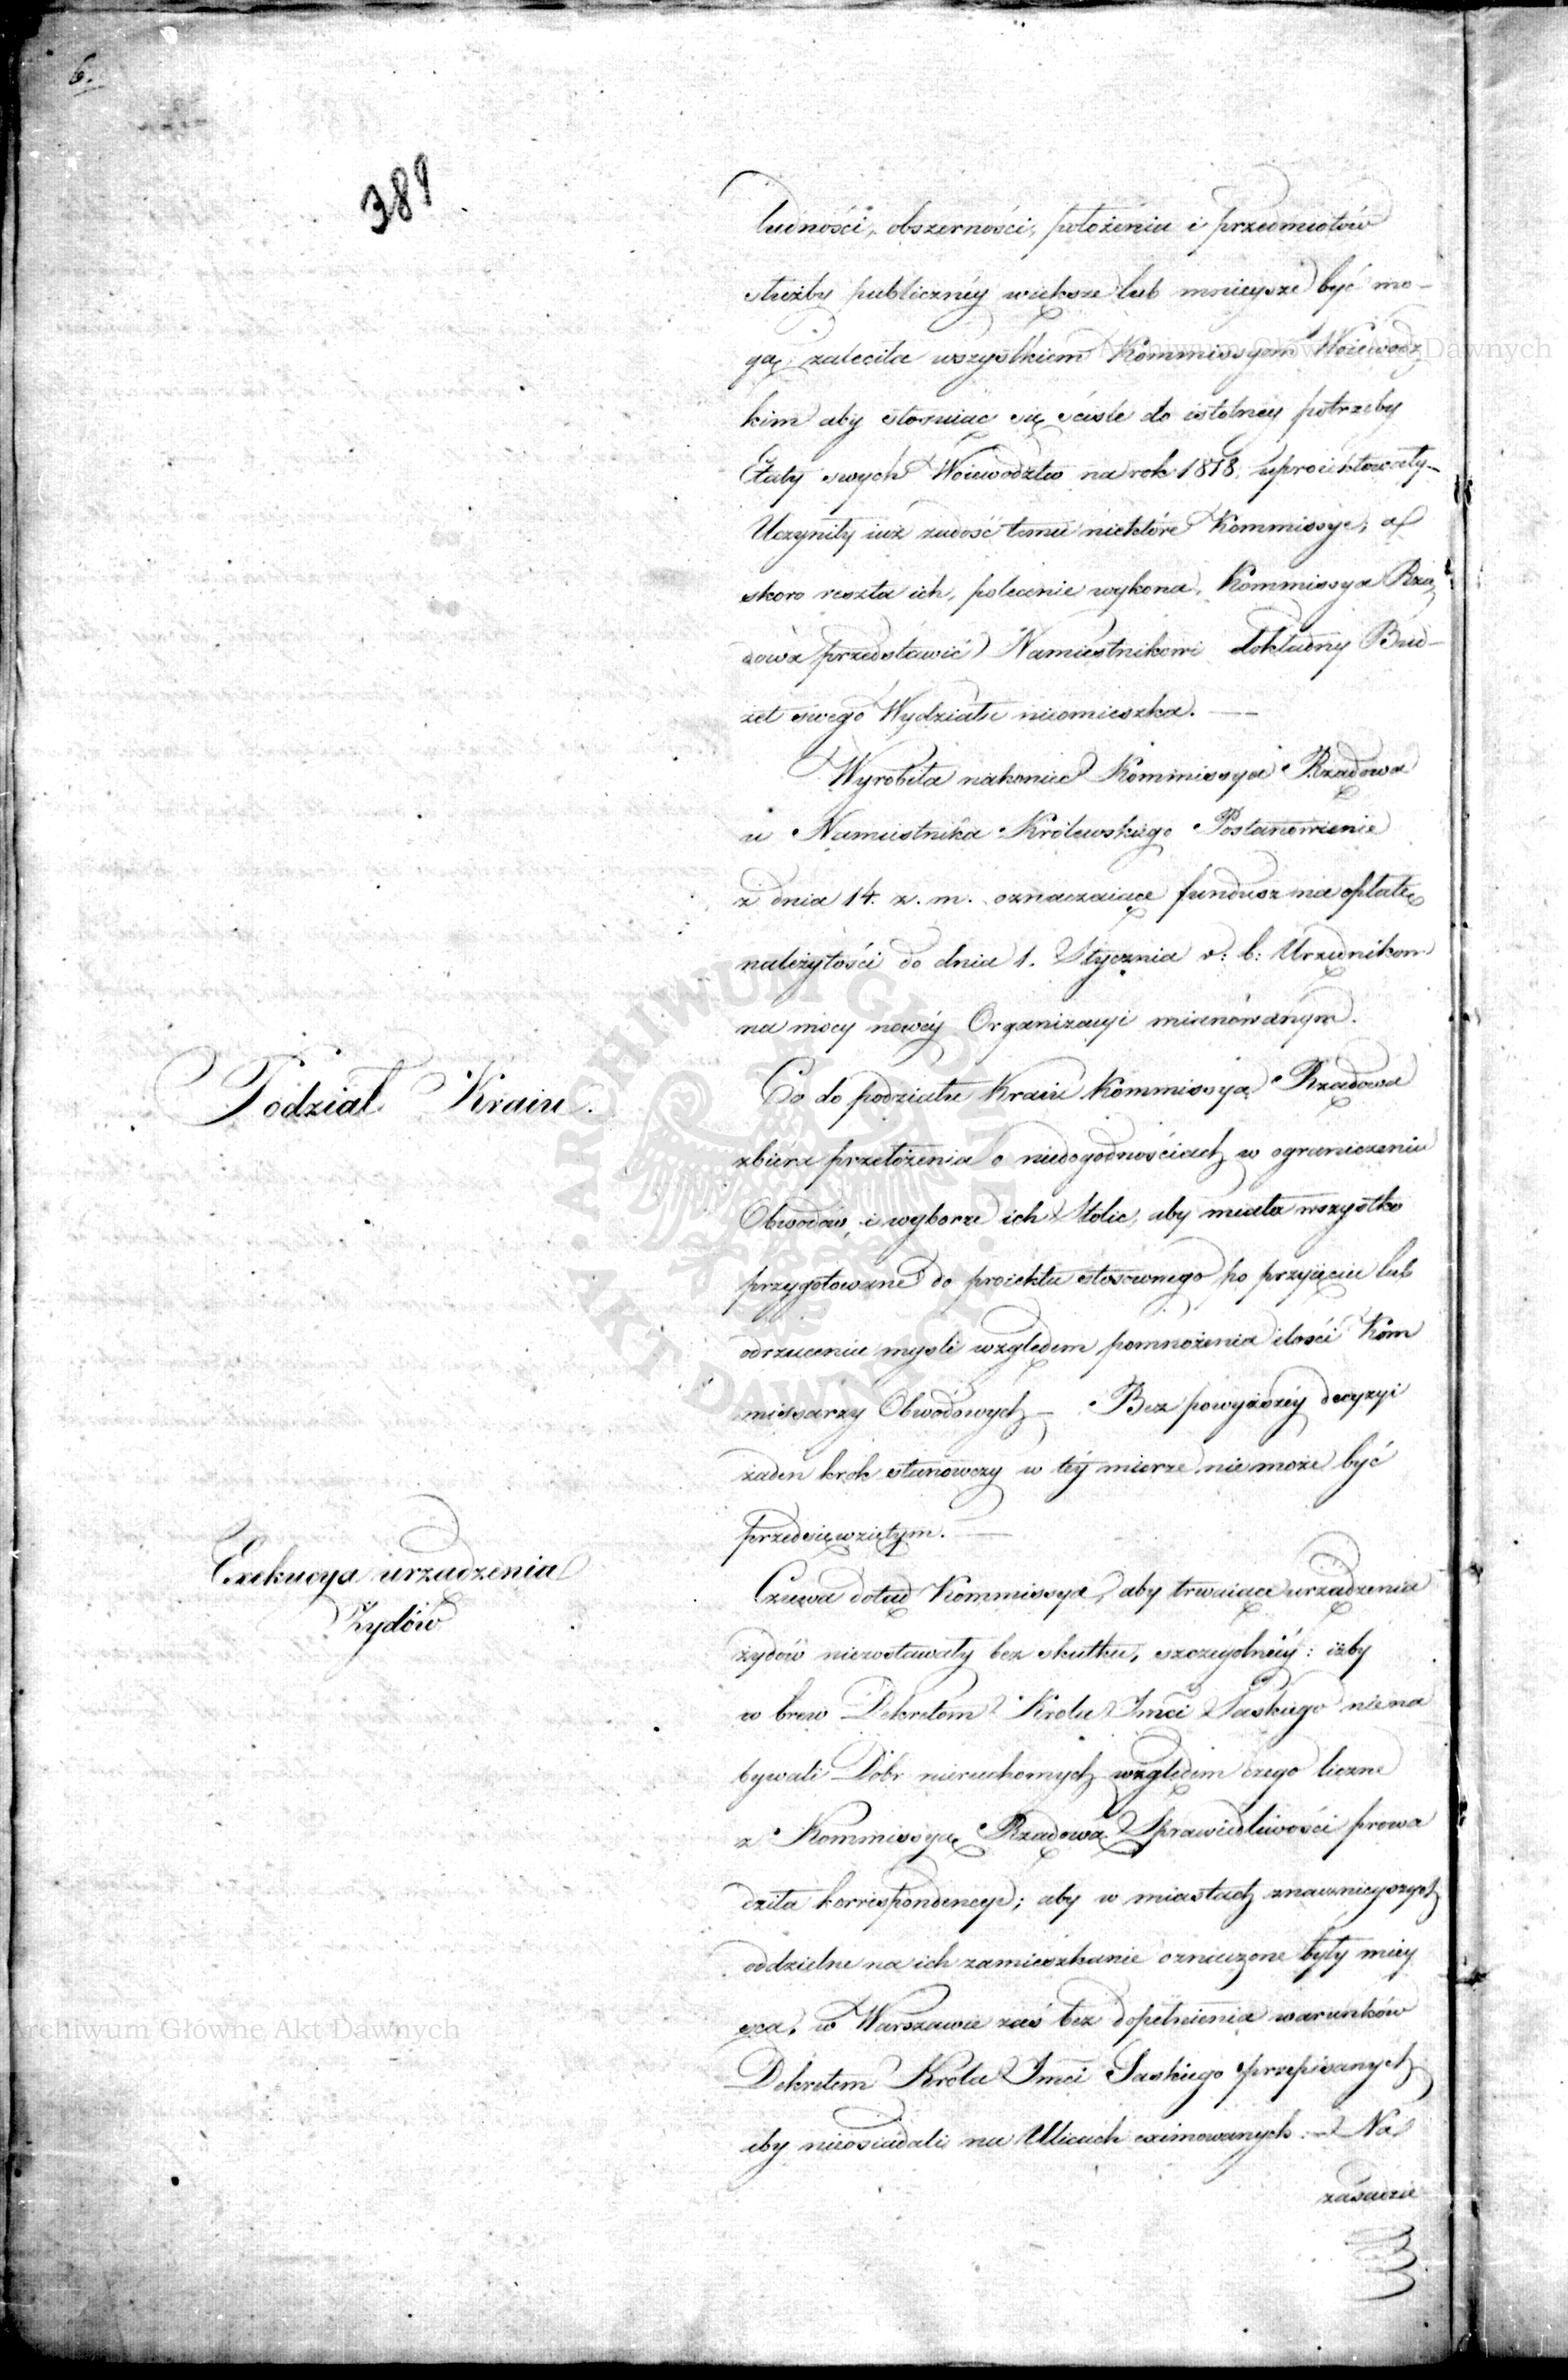 6.
389
ludności, obszerności, położenia i przedmiotów
służby publiczney większe lub mnieysze być mo-
gą: zaleciła wszystkiem Kommissyom Woiewodz
kim aby stosuiąc się ściśle do istotney potrzeby
Etaty swych Woiewództw na rok 1818. uproiektowały_
Uczyniły iuż zadość temu niektóre Kommissye; a
skoro reszta ich, polecenie wykona, Kommissya Rzą
dowa przedstawić Namiestnikowi dokładny Bud-
żet swego Wydziału nieomieszka. —
Wyrobiła nakoniec Kommissya Rządowa
u Namiestnika Królewskiego Postanowienie
z dnia 14. z. m. oznaczaiące fundusz na opłatę
należytości do dnia 1. Stycznia r: b: Urzędnikom
na mocy nowey Organizacyi mianowanym.
Podział Kraiu.
Co do podziału Kraiu Kommissya Rządowa
zbiera przełożenia o niedogodnościach w ograniczeniu
Obwodów, i wyborze ich Stolic, aby miała wszystko
przygotowane do proiektu stosownego po przyięciu lub
odrzuceniu myśli względem pomnożenia ilości Kom
missarzy Obwodowych — Bez powyższey decyzyi
żaden krok stanowczy w tey mierze nie może być
przedsięwziętym. —
Exekucya urządzenia
Żydów
Czuwa dotąd Kommissya, aby trwaiące urządzenia
żydów niezostawały bez skutku, szczegolniey: iżby
w brew Dekretom Krola Jmci Saskiego niena
bywali Dóbr nieruchomych względem czego liczne
z Kommissyą Rządową Sprawiedliwości prowa
dziła korrespondencye; aby w miastach znacznieyszych
oddzielne na ich zamieszkanie oznaczone były miey
sca, w Warszawie zaś bez dopełnienia warunków
Dekretem Króla Jmci Saskiego przepisanych
aby nieosiadali na Ulicach eximowanych. — Na
zasadzie
Archiwum Główne Akt Dawnych
Archiwum Główne Akt Dawnych
ARCHIWUM GŁÓWNE AKT DAWNYCH